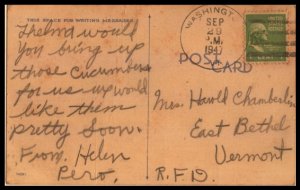 THIS SPACE FOR WRITING MESSAGES
Thelma would
You bring up
those cucumbers
for us. we would
like them
pretty soon.
From. Helen
Pero.
WASHINGT
SEP
20
P.M.
194
POST CARD
Mrs Harold Chamberlin
East Bethel
Vermont
R.F.D.